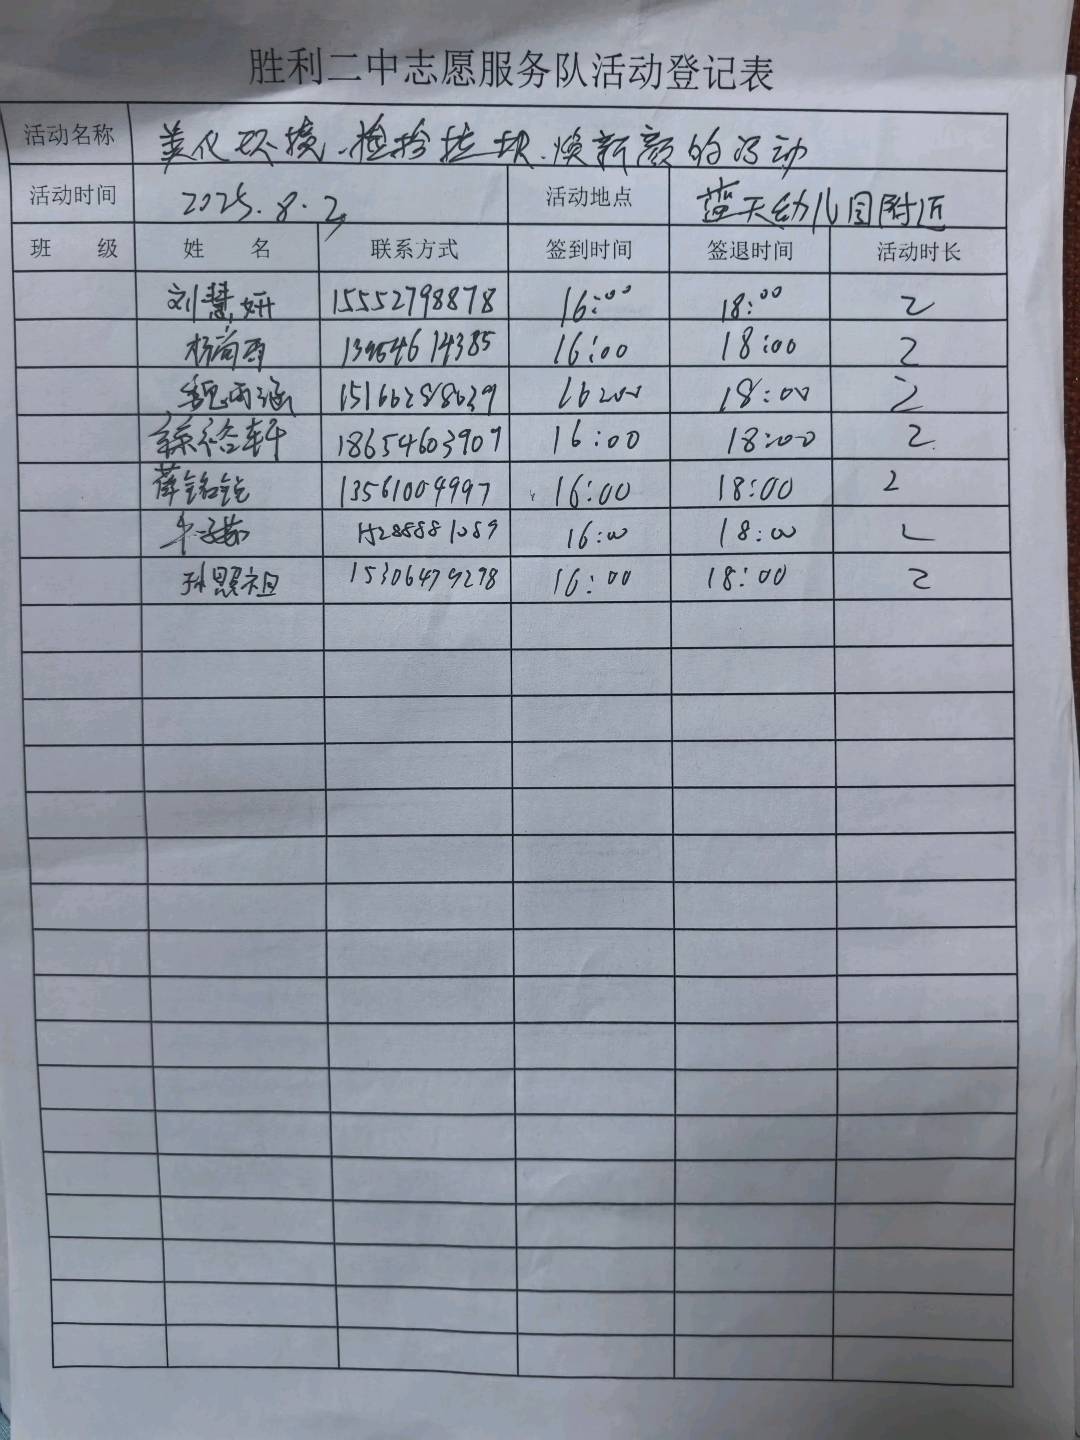 胜利二中志愿服务队活动登记表
活动名称 美化环境、捡拾垃圾、焕新颜的活动
活动时间 2025.8.2 活动地点 蓝天幼儿园附近
班 级 姓 名 联系方式 签到时间 签退时间 活动时长
刘慧妍 15552798878 16:00 18:00 2
杨尚雨 13954614385 16:00 18:00 2
魏雨涵 16:00 18:00 2
徐裕轩 18654603909 16:00 18:00 2
薛铭锐 13561004997 16:00 18:00 2
牛子茹 16:00 18:00 2
孙照祖 15306479278 16:00 18:00 2